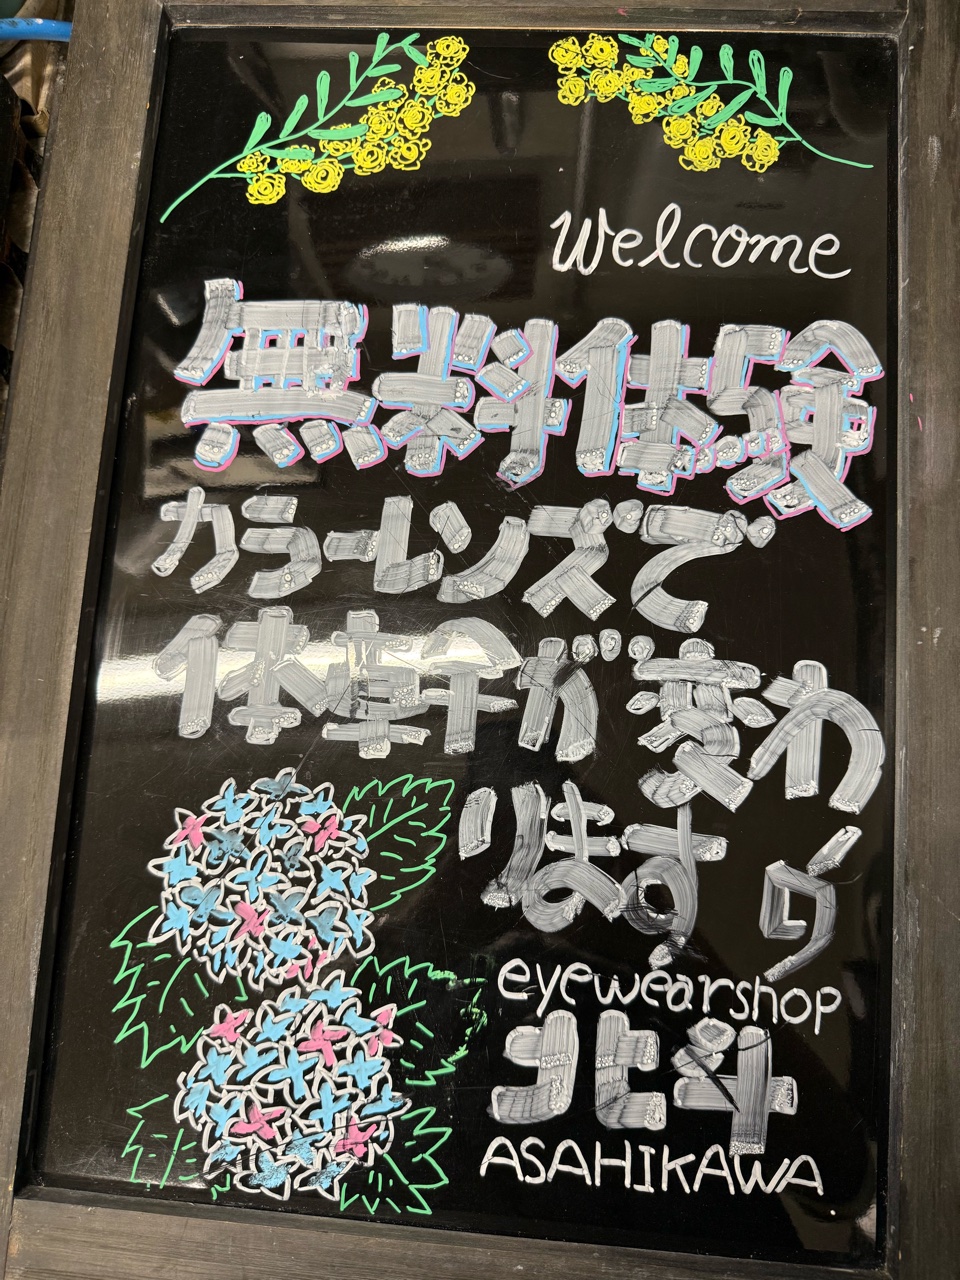 Welcome
無料体験
カラーレンズで
体調が変わ
ります
eyewearshop
北斗
ASAHIKAWA